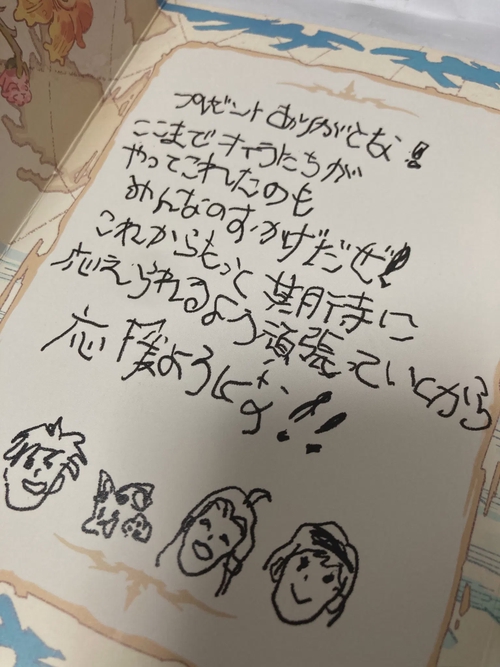 プレゼントありがとな!!
ここまでオイラたちが
やってこれたのも
みんなのおかげだぜ!
これからもっと期待に
応えられるよう頑張っていくから
応援よろしくな!!